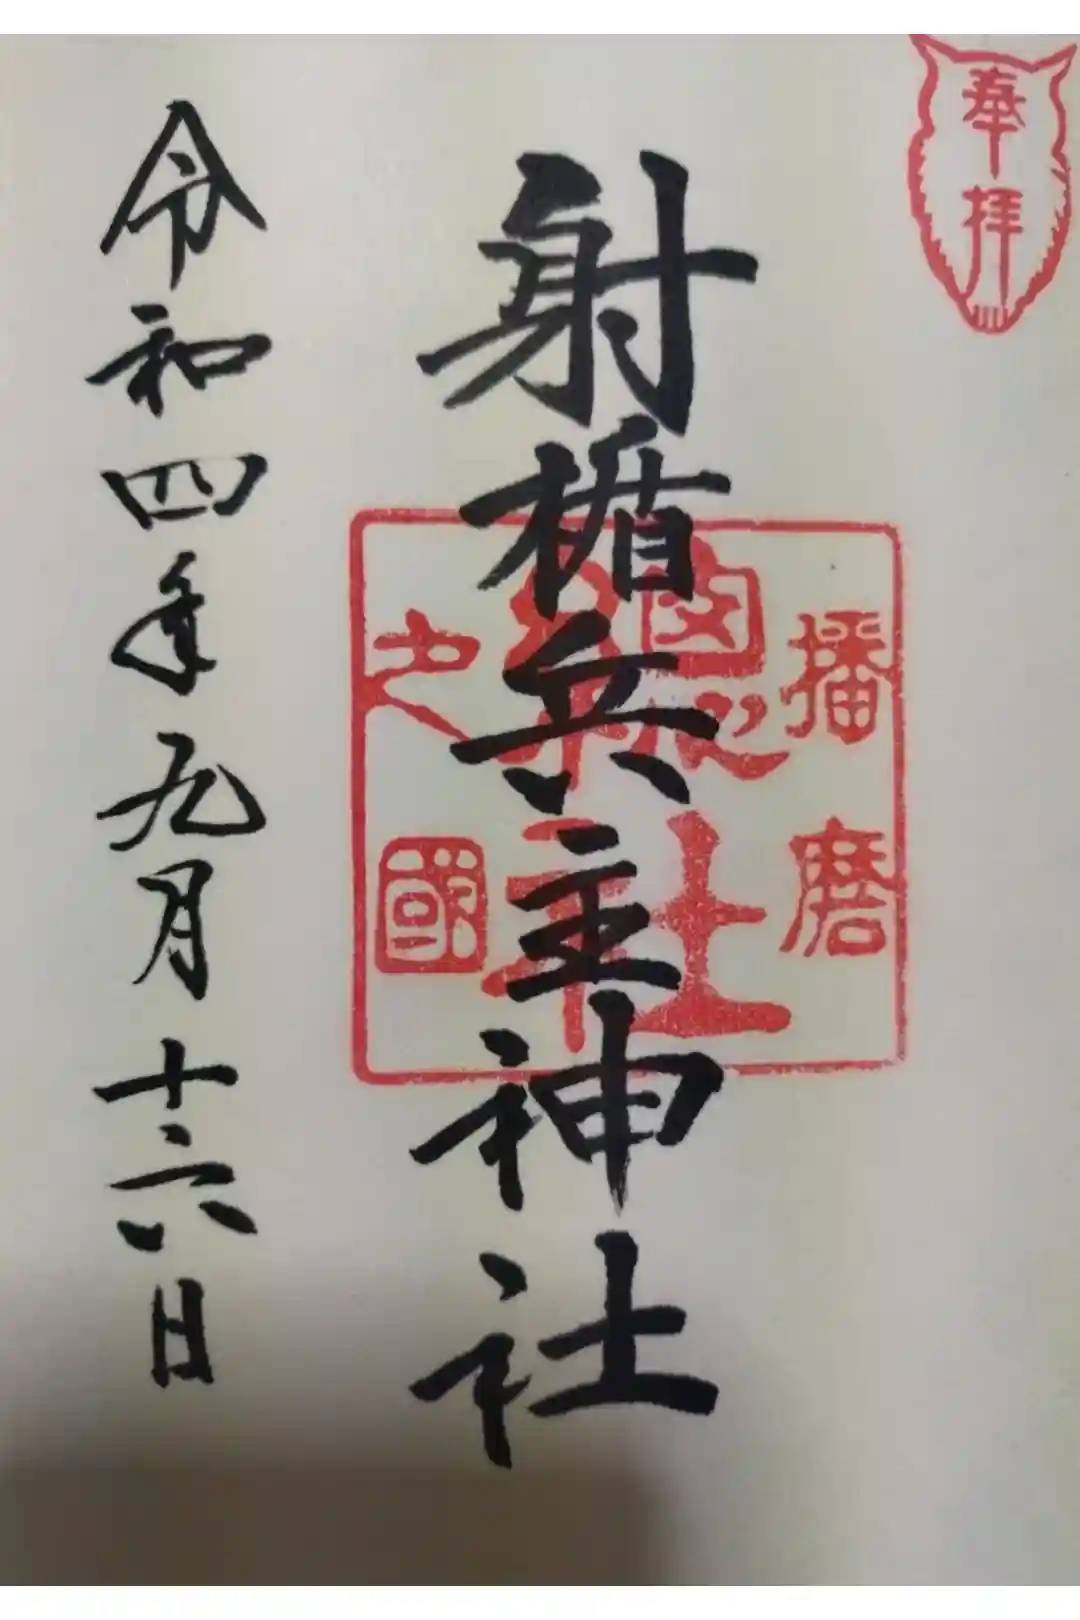 奉拝
播磨
國総社
之國
射楯兵主神社
令和四年九月十六日